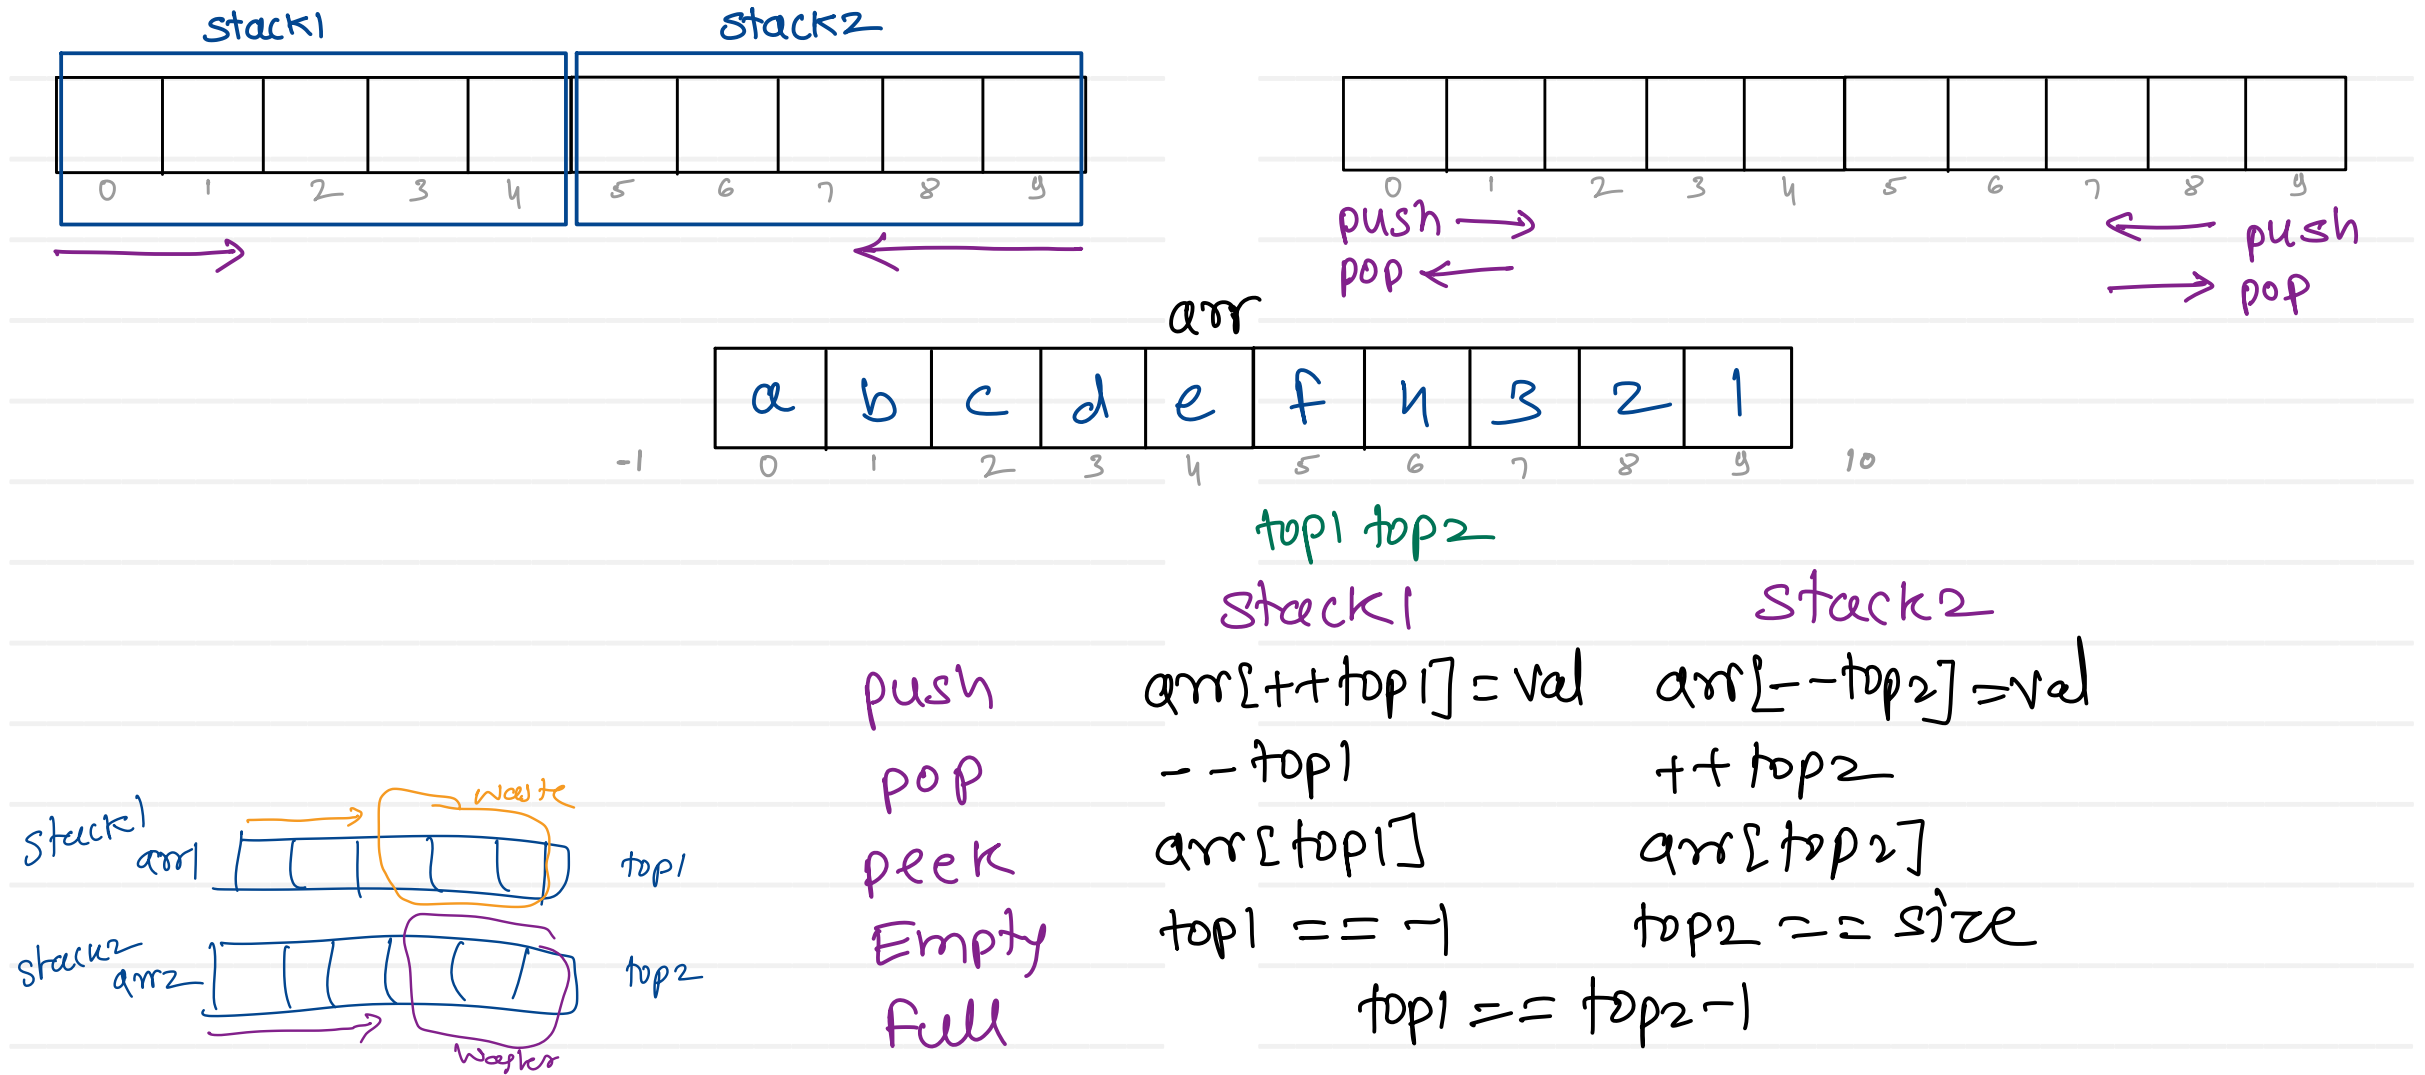 stack1 stack2
0 1 2 3 4 5 6 7 8 9
0 1 2 3 4 5 6 7 8 9
push push
pop pop
arr
a b c d e f 4 3 2 1
-1 0 1 2 3 4 5 6 7 8 9 10
top1 top2
stack1 stack2
push arr[++top1] = val arr[--top2] = val
pop --top1 ++top2
peek arr[top1] arr[top2]
Empty top1 == -1 top2 == size
Full top1 == top2-1
waste
stack1
arr1 top1
stack2
arr2 top2